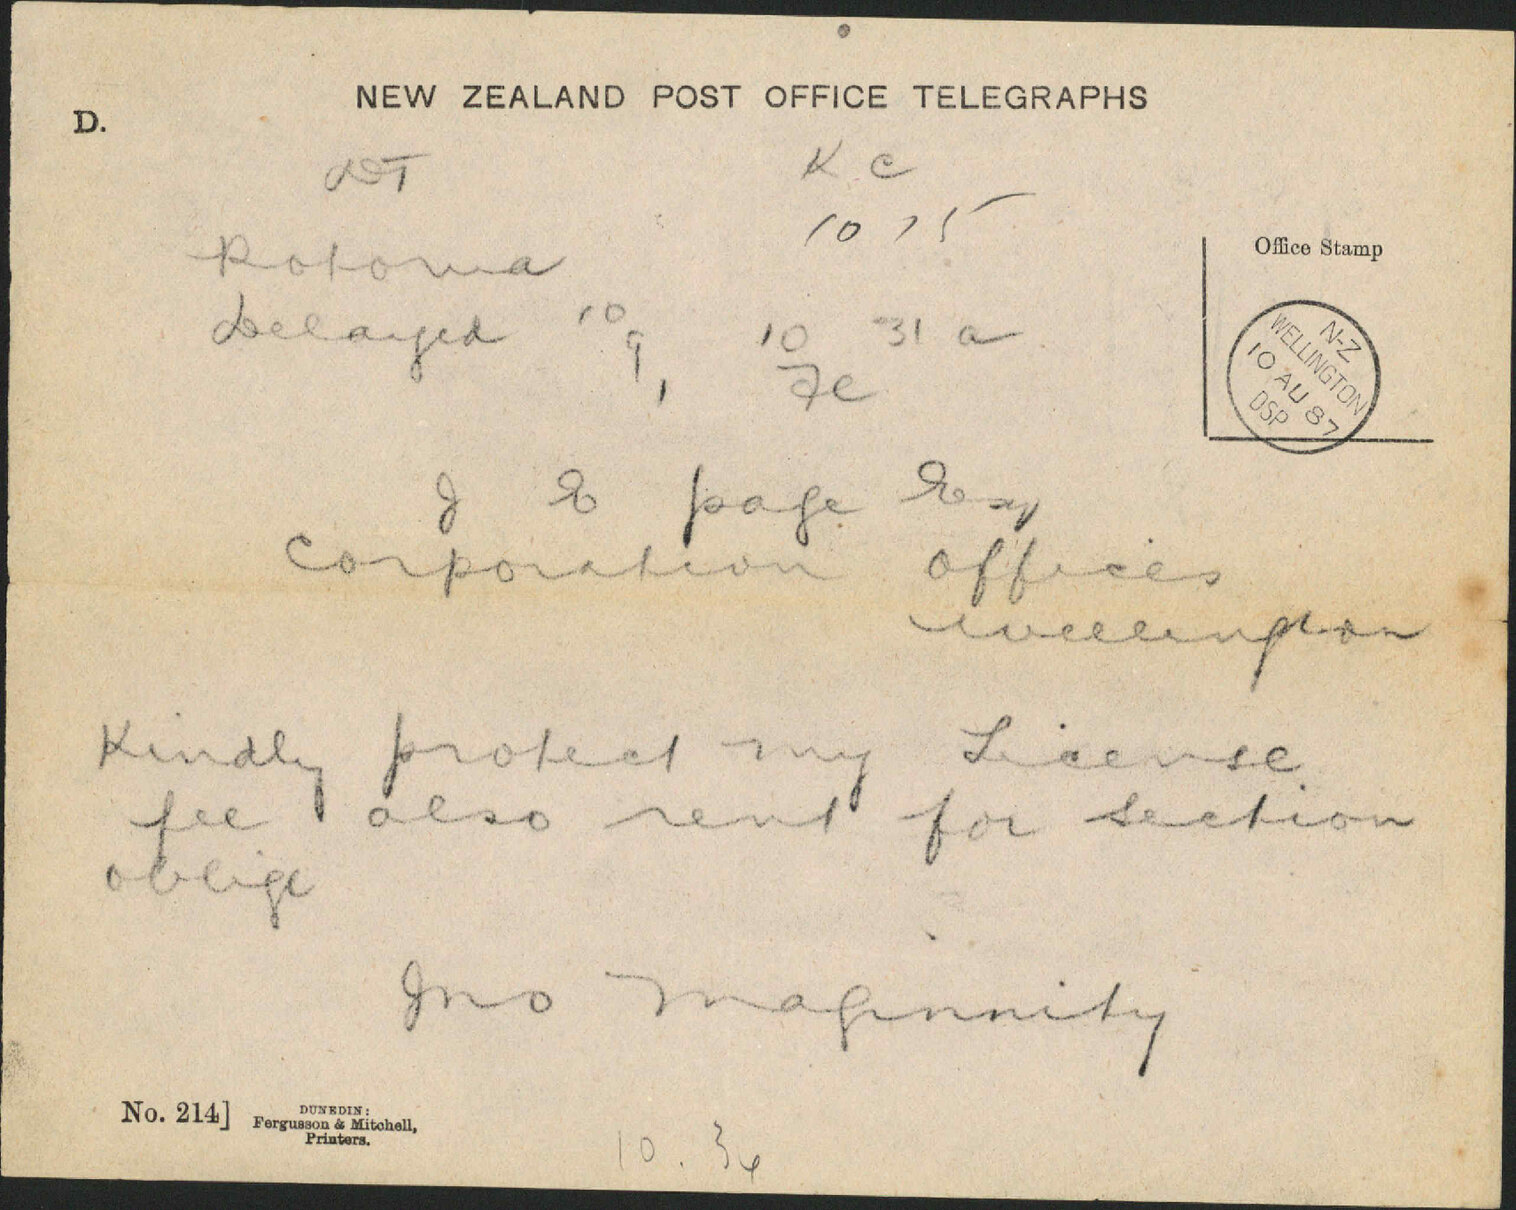 NEW ZEALAND POST OFFICE TELEGRAPHS
D.
DT
K C
10 15
Office Stamp
Rotorua
Delayed 10 9 10 31 a
N-Z
WELLINGTON
10 AU 87
DSP
J E page Esq
Corporation offices
wellington
Kindly protect my License
fee also rent for section
oblige
Jno Maginnity
No. 214]
DUNEDIN:
Fergusson & Mitchell,
Printers.
10.34